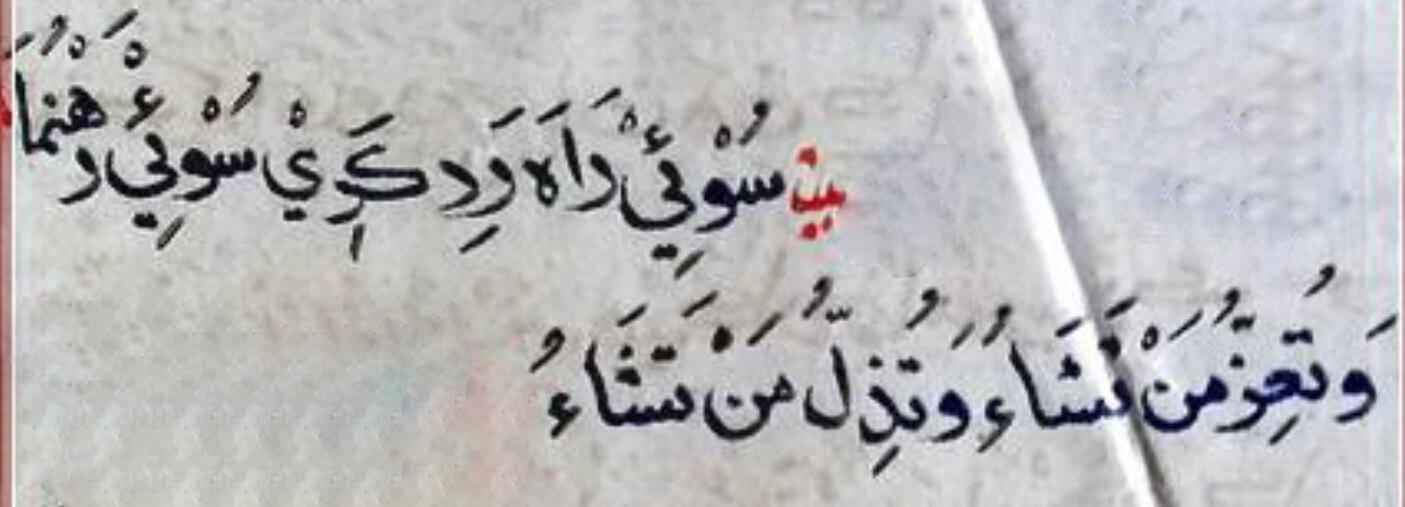 بيت سُوْئِيْ رَاَه رَدِ كَرِيْ سُوْئِيْ رَهْنُمَا
وَتُعِزُّ مَنْ تَشَاءُ وَتُذِلُّ مَنْ تَشَاءُ